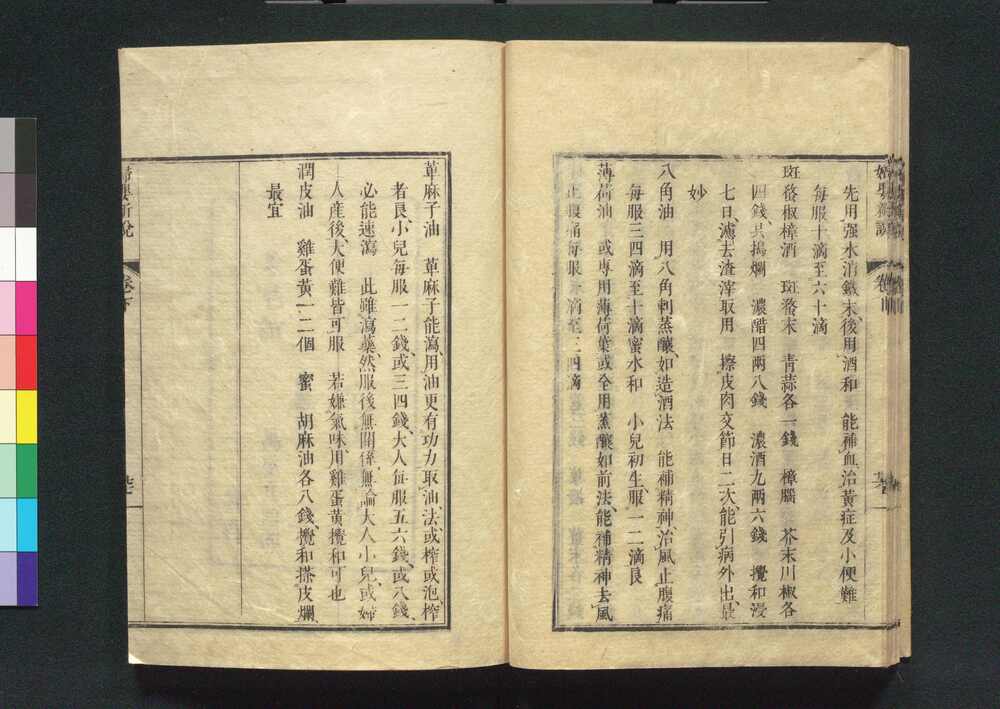 婦嬰新說
先用强水消鐵末後用酒和　能補血治黃症及小便難
每服十滴至六十滴
斑蝥椒樟酒　斑蝥末　青蒜各一錢　樟腦　芥末川椒各
四錢、共搗爛　濃醋四兩八錢　濃酒九兩六錢　攪和浸
七日、濾去渣滓取用　擦皮肉交節日二次、能引病外出、最
妙
八角油　用八角刺蒸釀、如造酒法　能補精神、治風止腹痛
每服三四滴至十滴蜜水和　小兒初生服一二滴良
薄荷油　或專用薄荷葉或全用蒸釀如前法、能補精神去風
止腹痛每服 滴至三四滴
萆麻子油　萆麻子能瀉、用油更有功力取油法、或榨或泡榨
者良、小兒每服一二錢、或三四錢、大人每服五六錢、或八錢、
必能速瀉　此雖瀉藥、然服後無關係、無論大人小兒、或婦
人產後、大便難皆可服　若嫌氣味、用雞蛋黃攪和可也
潤皮油　雞蛋黃一二個　蜜　胡麻油各八錢、攪和搽皮爛、
最宜
婦嬰新說　卷下